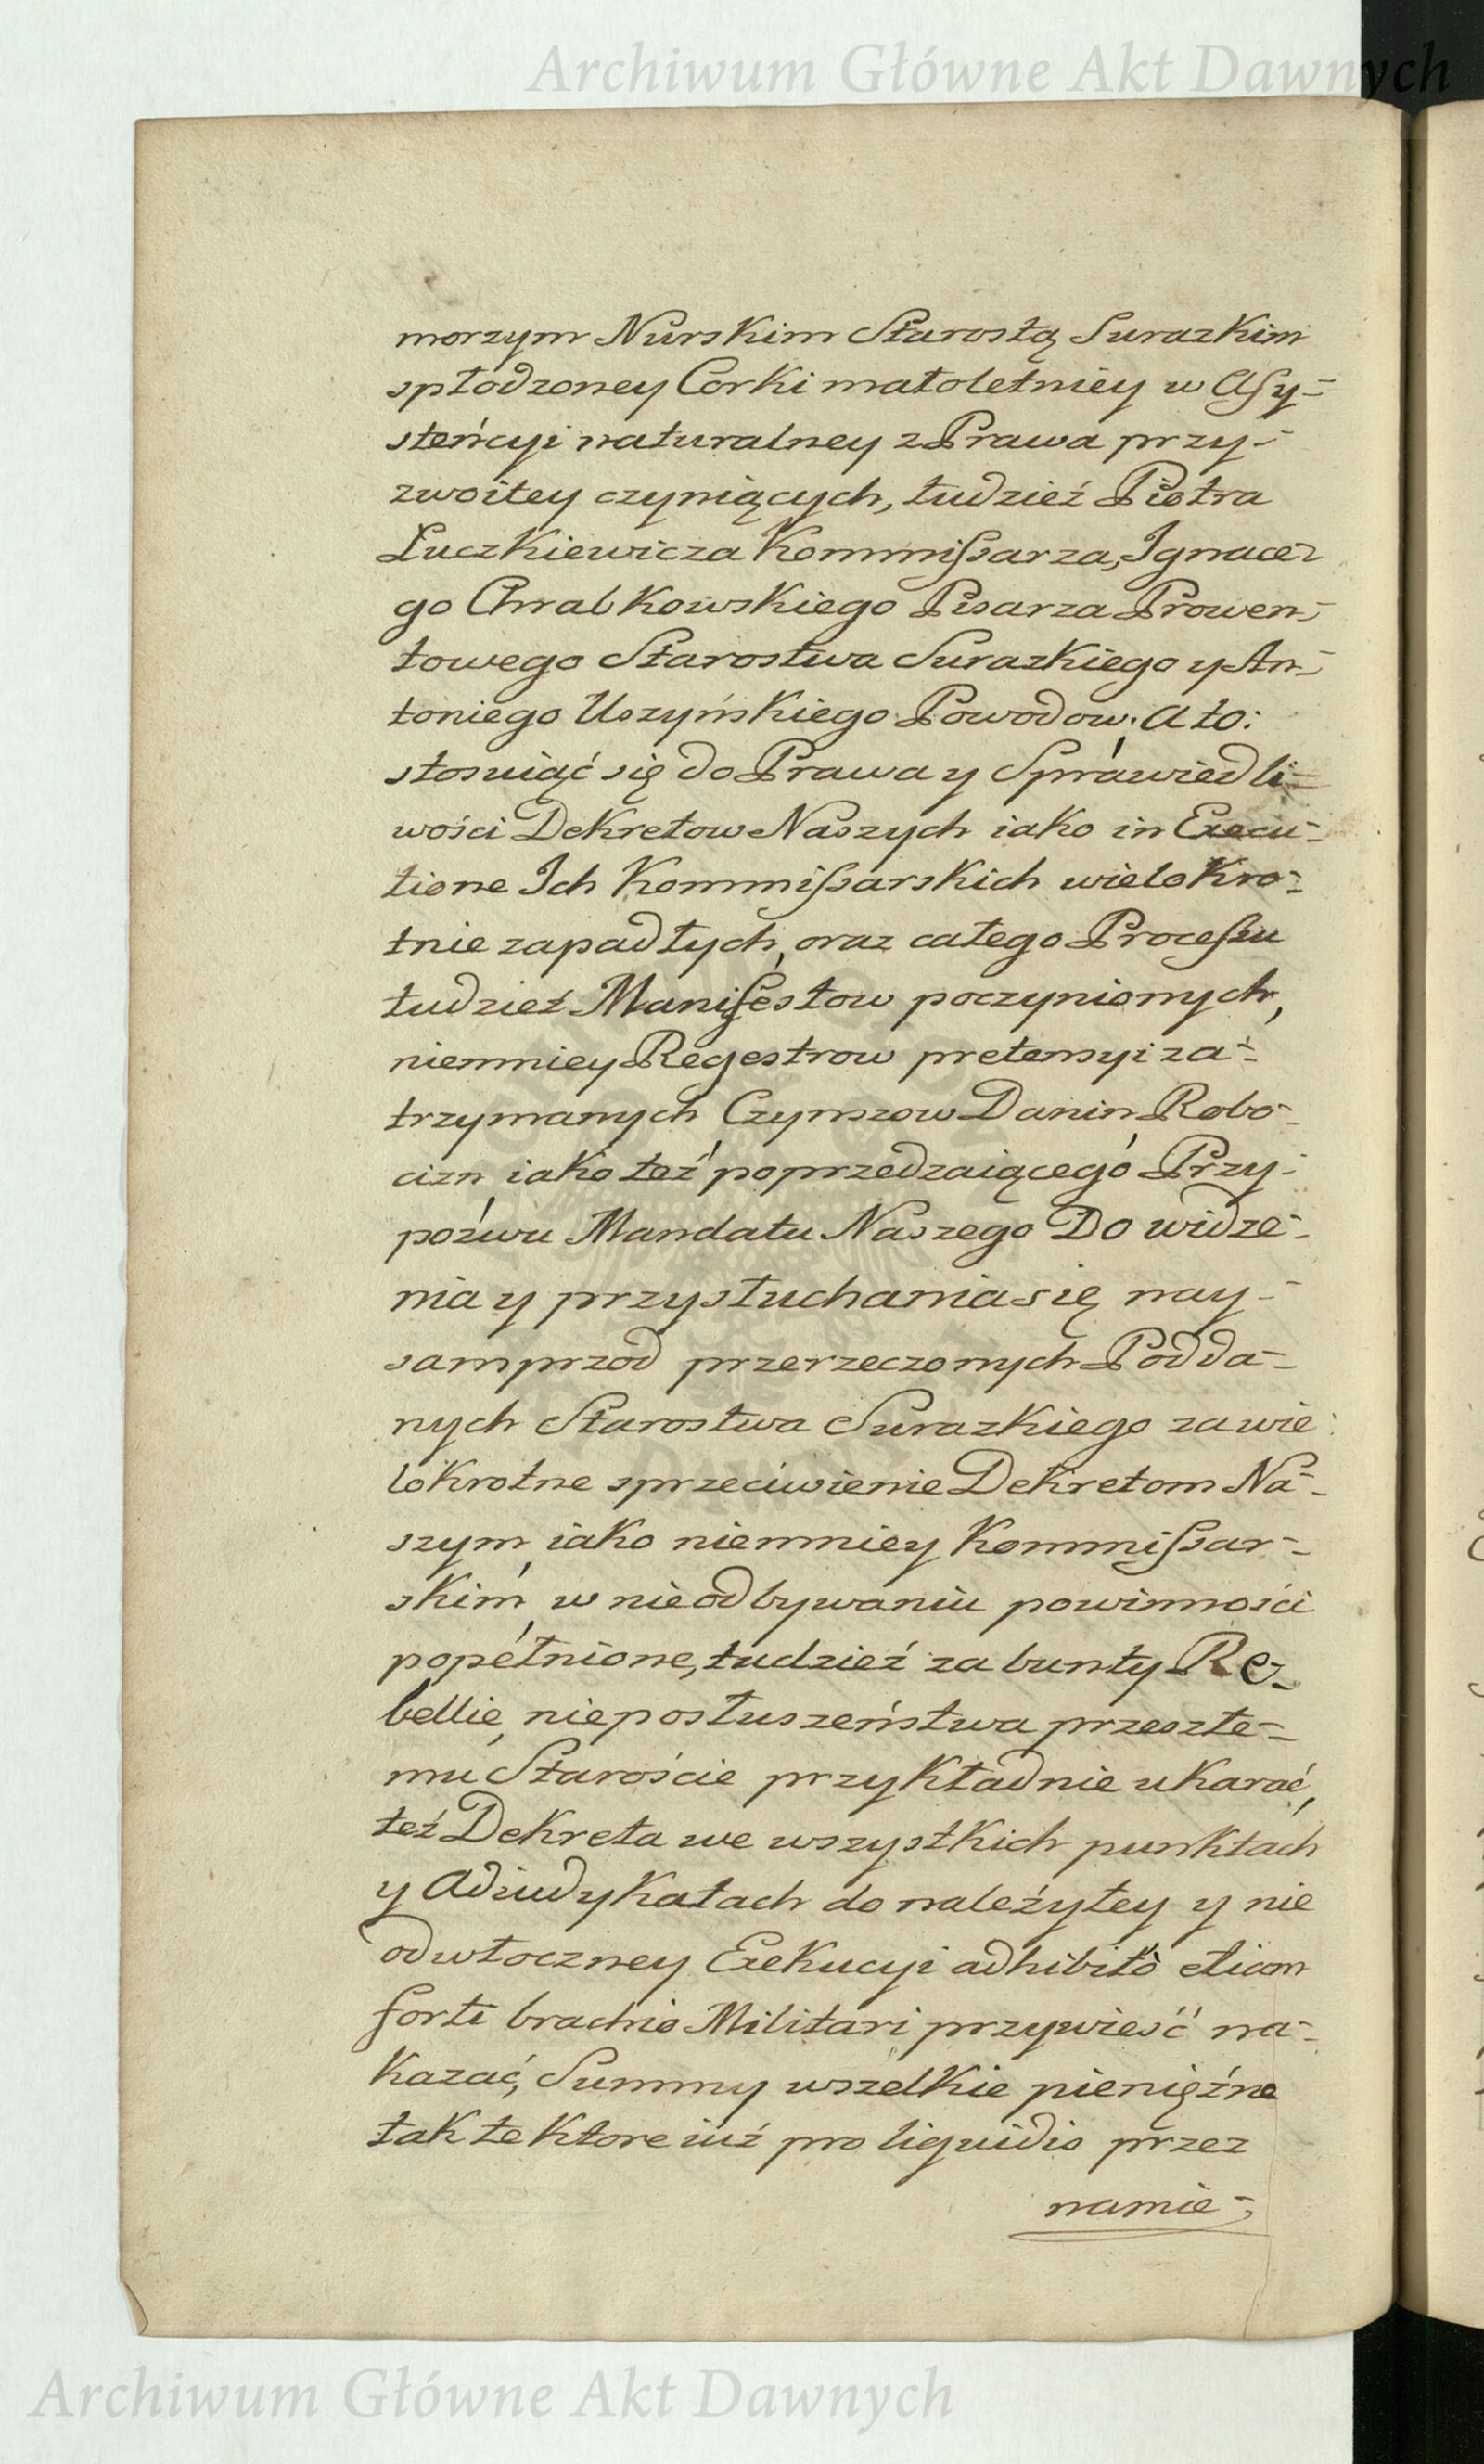 Archiwum Główne Akt Dawnych
morzym Nurskim Starostą Surazkim
spłodzoney Corki małoletniey w Assy-
steńcyi naturalney z Prawa przy-
zwoitey czyniących, tudzież Piotra
Łuczkiewicza Kommissarza, Ignace-
go Chrabkowskiego Pisarza Prowen-
towego Starostwa Surazkiego y An-
toniego Uszyńskiego Powodow. A to:
stosuiąć się do Prawa y Sprawiedli-
wości Dekretow Naszych iako in Execu-
tione Ich Kommissarskich wielokro-
tnie zapadłych, oraz całego Processu
tudzież Manifestow poczynionych,
niemniey Regestrow pretensyi za-
trzymanych Czynszow Danin Robo-
cizn, iako też poprzedzaiącego Przy-
pozwu Mandatu Naszego Do widze-
nia y przysłuchania się nay-
samprzod przerzeczonych Podda-
nych Starostwa Surazkiego za wie-
lokrotne sprzeciwienie Dekretom Na-
szym, iako niemniey Kommissar-
skim, w nieodbywaniu powinności
popełnione, tudzież za bunty Re-
bellie, nieposłuszeństwa przeszłe-
mu Staroście przykładnie ukarać,
też Dekreta we wszystkich punktach
y Adiudykatach do należytey y nie
odwłoczney Exekucyi adhibito etiam
forti brachio Militari przywieść na-
kazać, Summy wszelkie pieniężne
tak te ktore iuż pro liquidis przez
namie-
Archiwum Główne Akt Dawnych